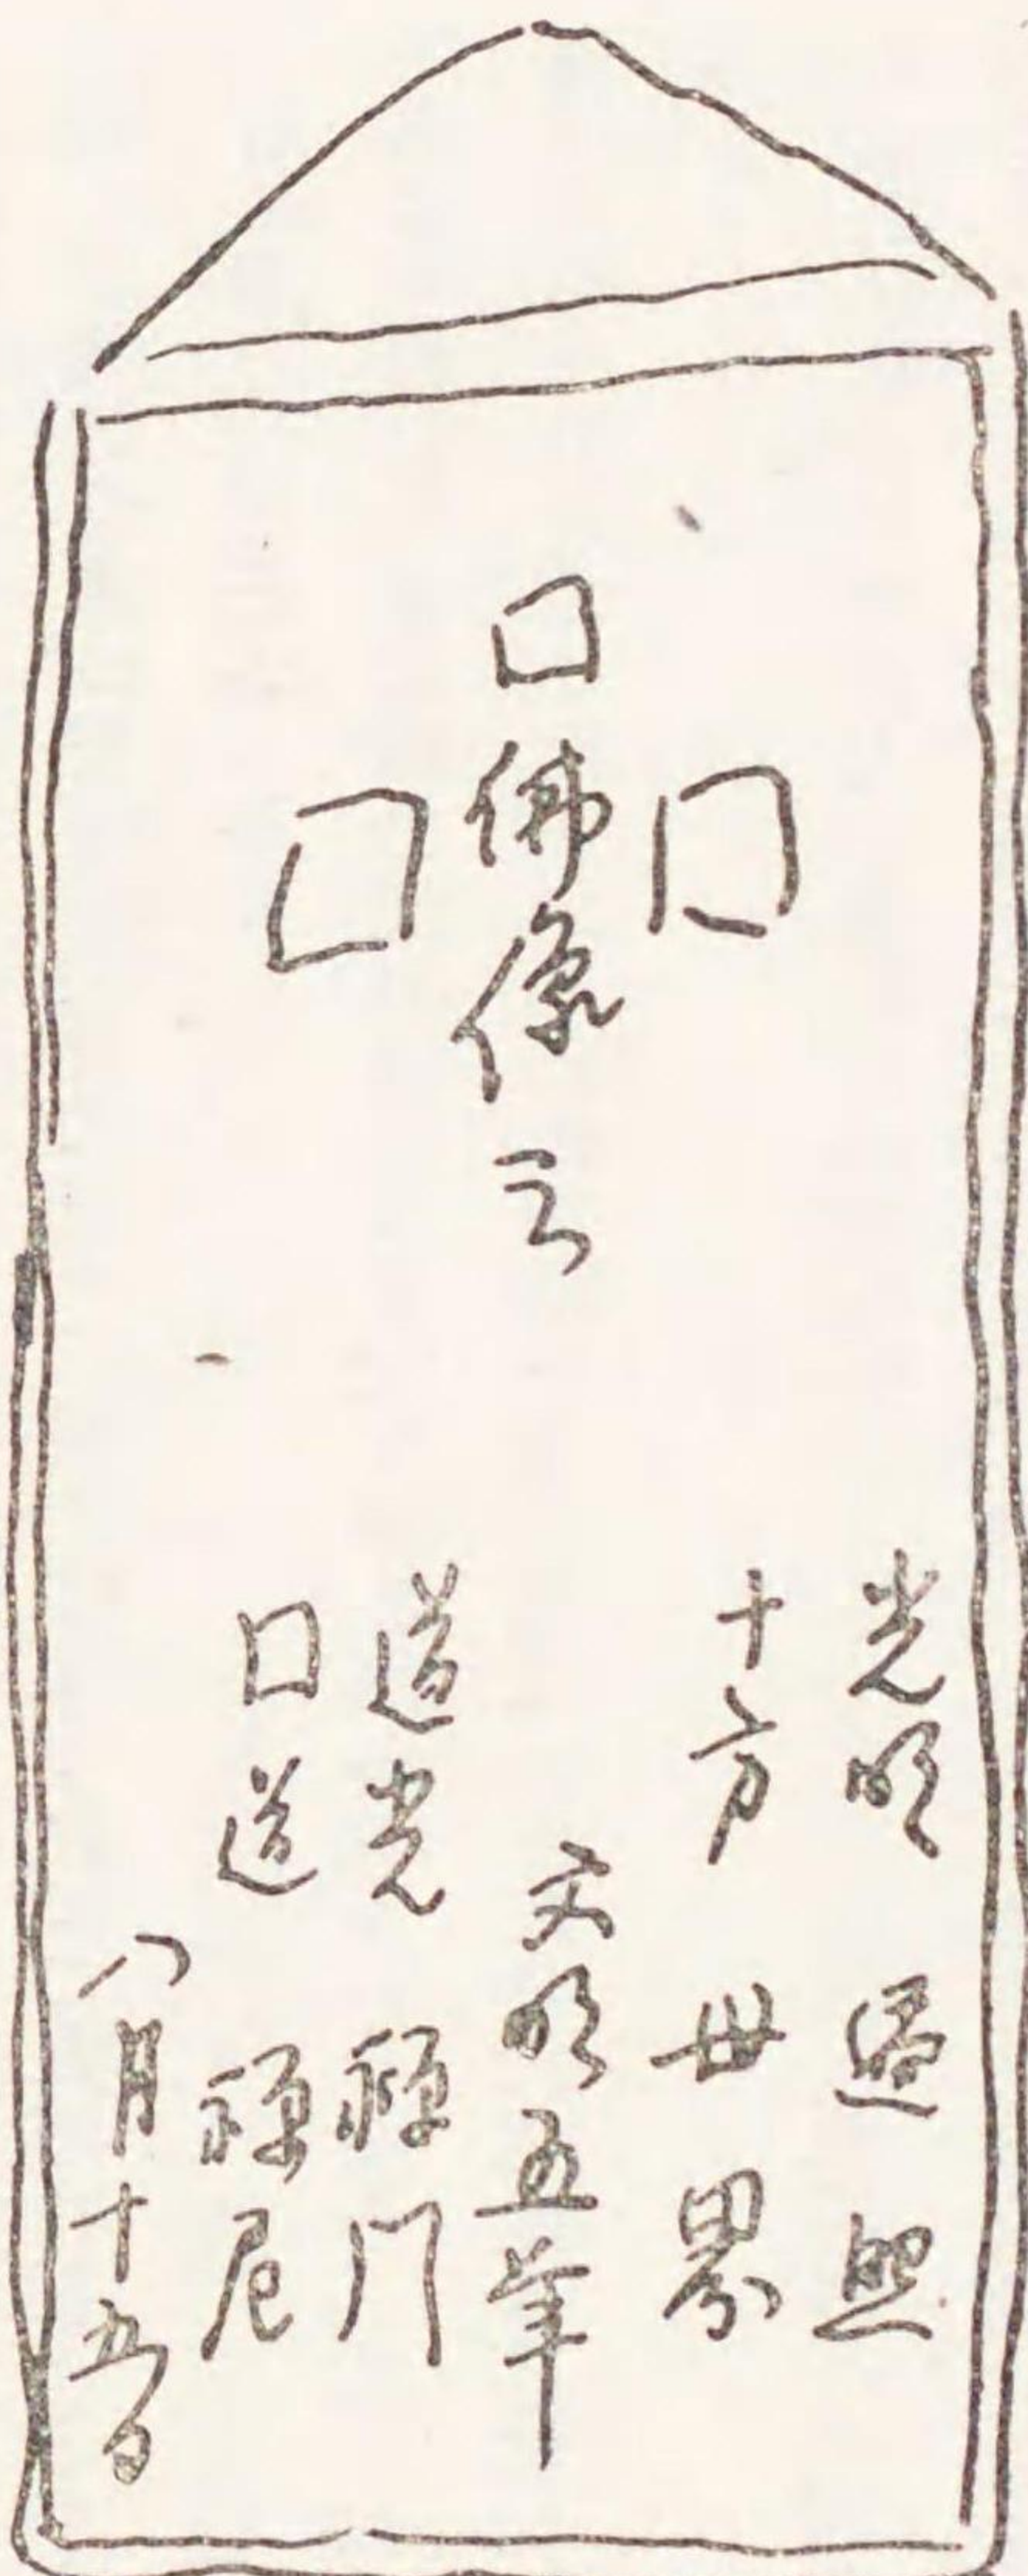 □
□佛像云
□
光明 遍照
十方 世界
文明五年
道光 禅門
□道 禅尼
八月十五日